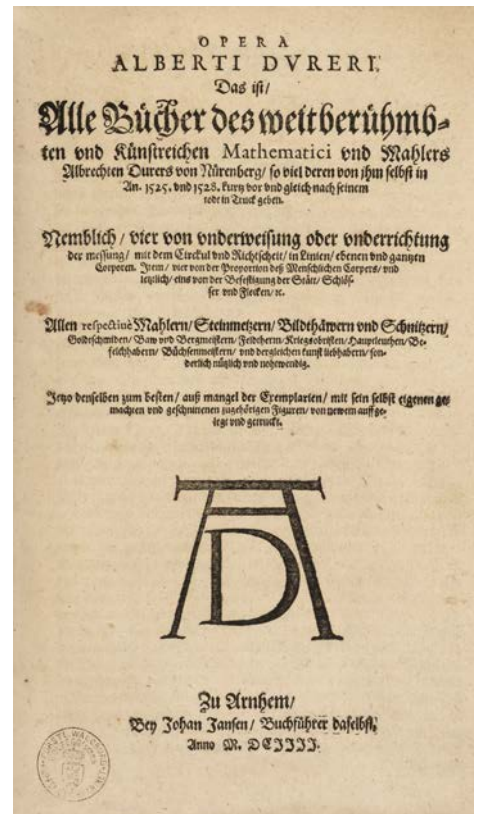 OPERA
ALBERTI DVRERI.
Das ist/
Alle Bücher des weitberühmb-
ten vnd Künstreichen Mathematici vnd Mahlers
Albrechten Durers von Nürenberg/ so viel deren von jhm selbst in
An. 1525. vnd 1528. kurtz vor vnd gleich nach seinem
todt in Truck geben.
Nemblich/ vier von vnderweisung oder vnderrichtung
der messung/ mit dem Circkul vnd Richtscheit/ in Linien/ ebenen vnd gantzen
Corporen. Item/ vier von der Proportion deß Menschlichen Corpers/ vnd
letzlich/ eins von der Befestigung der Stätt/ Schlös-
ser vnd Flecken/ ꝛc.
Allen respectiuè Mahlern/ Steinmetzern/ Bildthäwern vnd Schnitzern/
Goldtschmiden/ Baw vnd Bergmeistern/ Feldtherrn/ Kriegsobristen/ Hauptleuthen/ Be-
felchhabern/ Büchsenmeistern/ vnd dergleichen kunst liebhabern/ son-
derlich nützlich vnd nohtwendig.
Jetzo denselben zum besten/ auß mangel der Exemplarien/ mit sein selbst eigenen ge-
machten vnd geschnittenen zugehörigen Figuren/ von newem auff ge-
legt vnd getruckt.
AD
Zu Arnhem/
Bey Johan Jansen/ Buchführer daselbst,
Anno M. DCIIII.